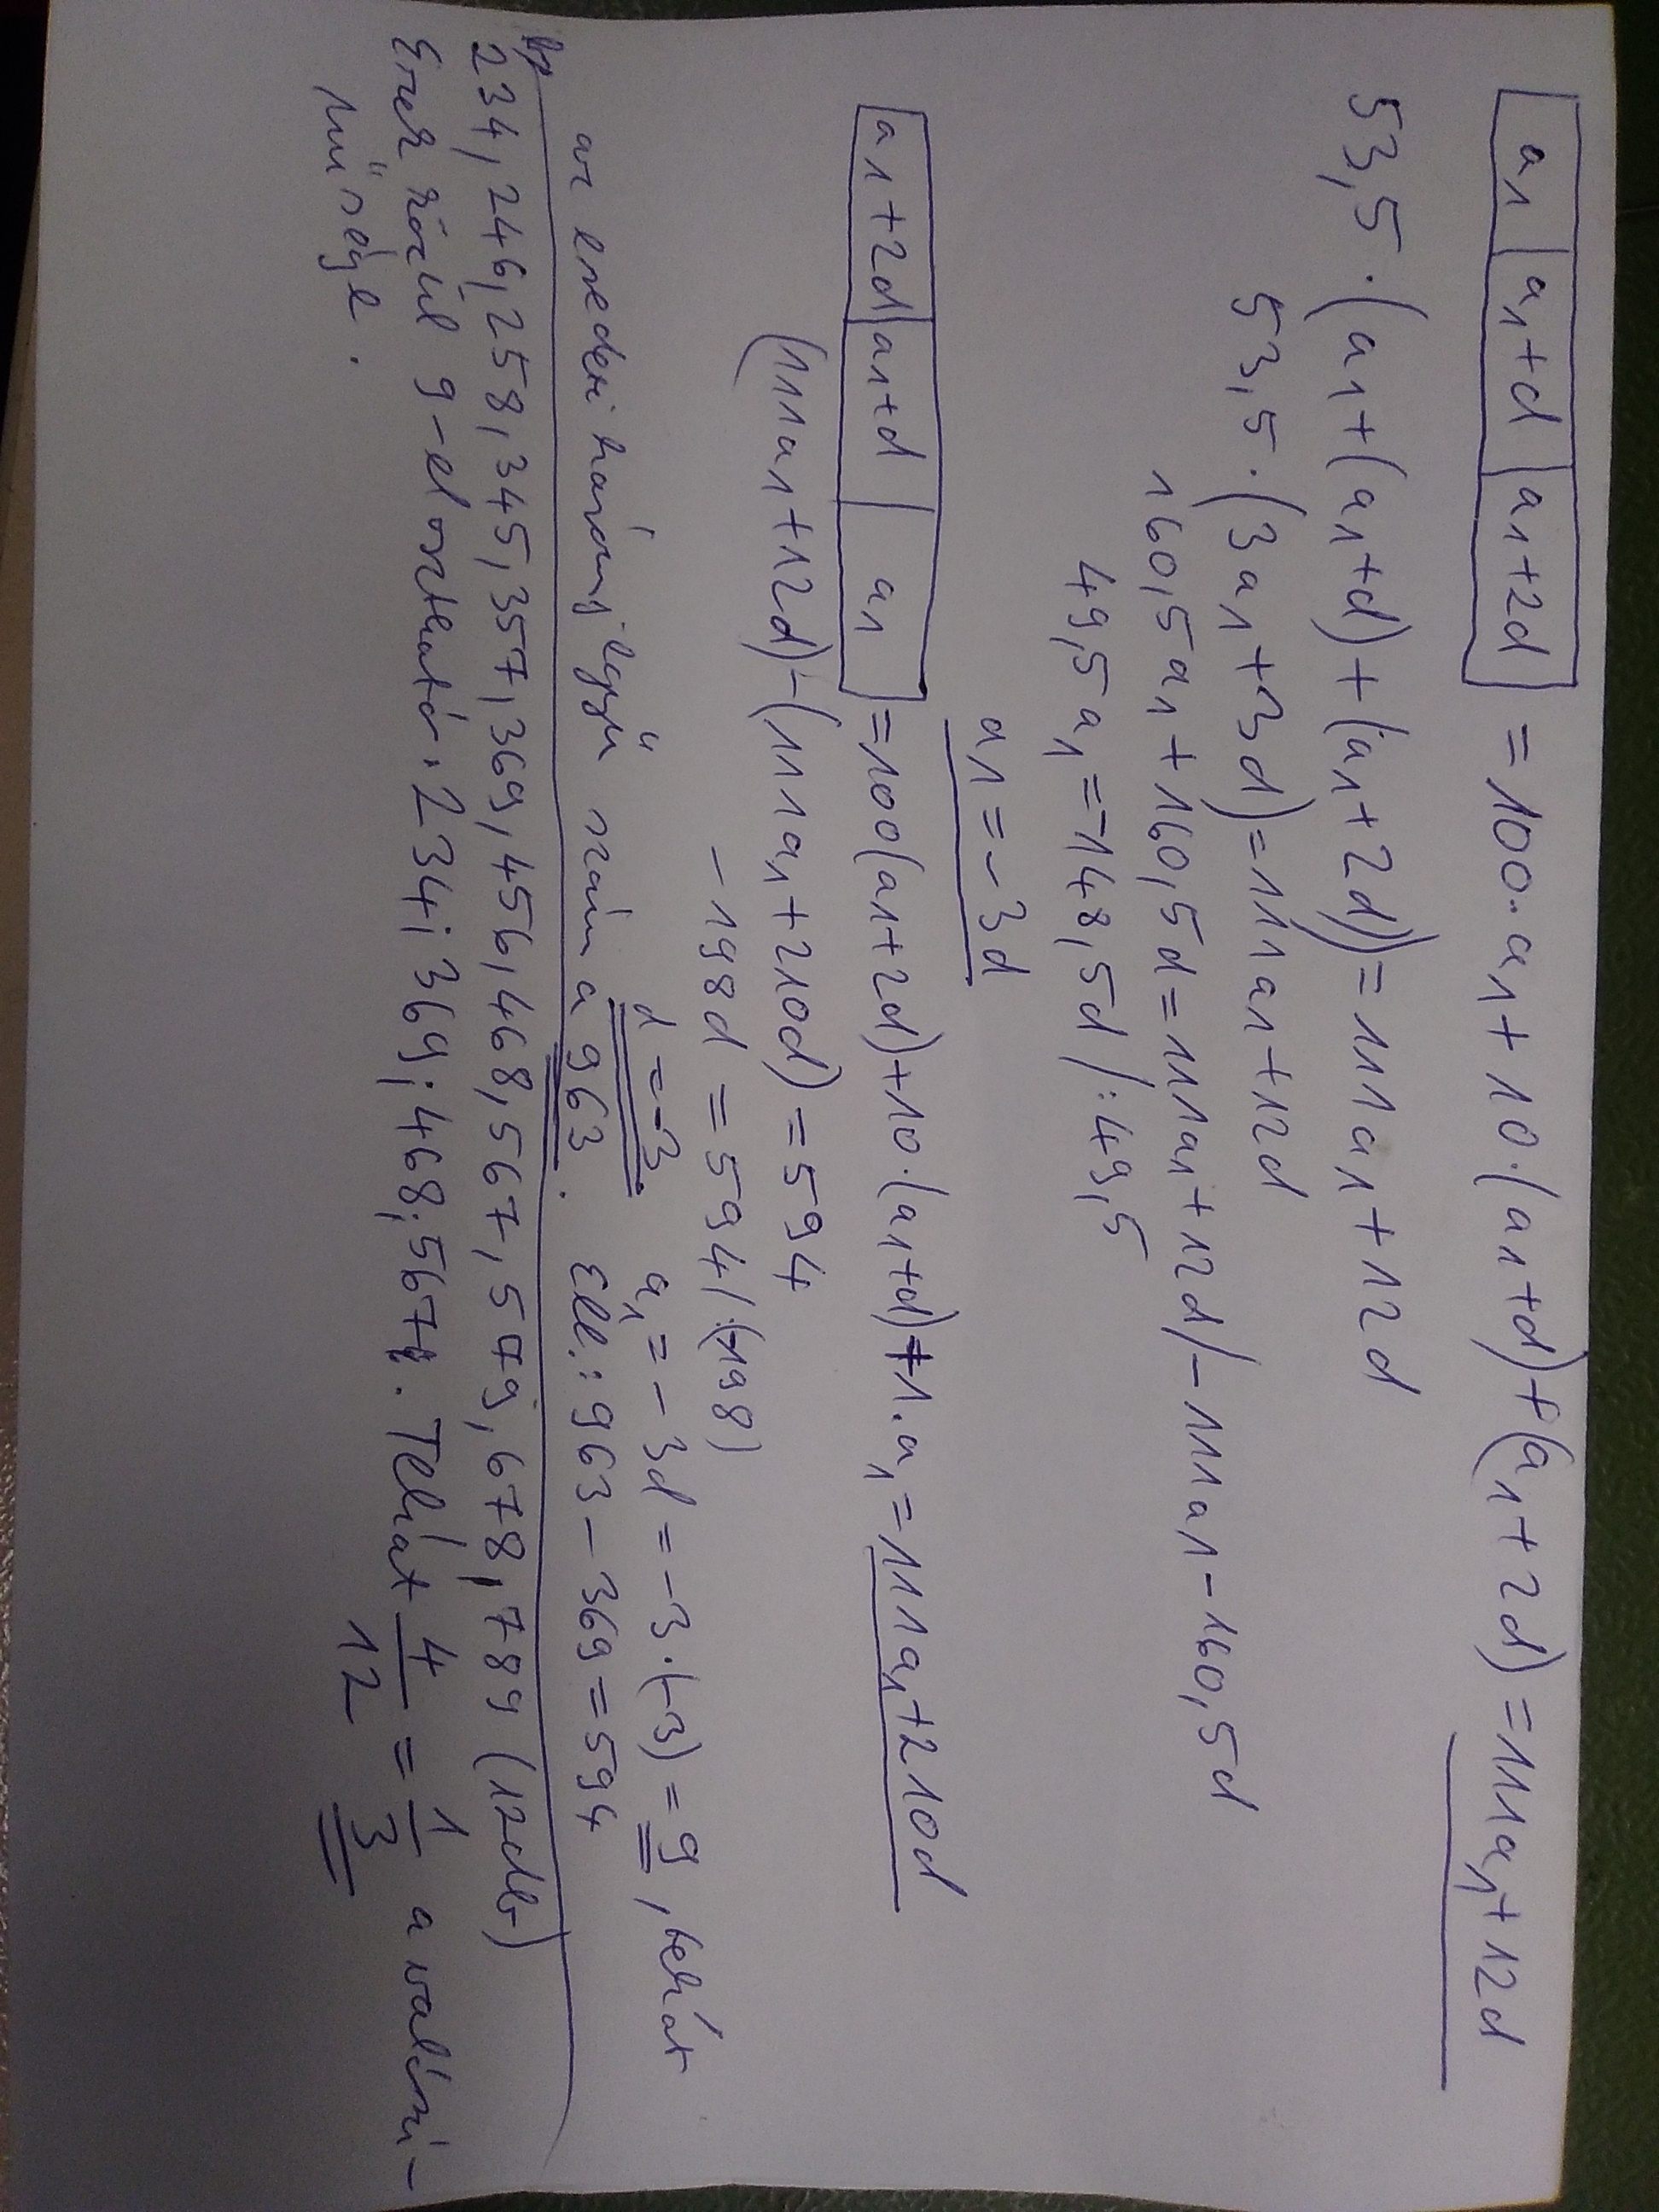 a1 | a1+d | a1+2d = 100·a1 + 10·(a1+d)+(a1+2d) = 111a1+12d
53,5·(a1+(a1+d)+(a1+2d))=111a1+12d
53,5·(3a1+3d)=111a1+12d
160,5a1+160,5d=111a1+12d/-111a1-160,5d
49,5a1=-148,5d/:49,5
a1=-3d
a1+2d | a1+d | a1 =100(a1+2d)+10·(a1+d)+1·a1=111a1+210d
(111a1+12d)-(111a1+210d)=594
-198d=594/:(-198)
d=-3 a1=-3d=-3·(-3)=9, tehát
az eredeti háromjegyű szám a 963. Ell.: 963-369=594
b,
234, 246, 258, 345, 357, 369, 456, 468, 567, 579, 678, 789 (12db)
Ezek közül 9-el osztható: 234; 369; 468; 567. Tehát 4/12 = 1/3 a valószí-
nűsége.